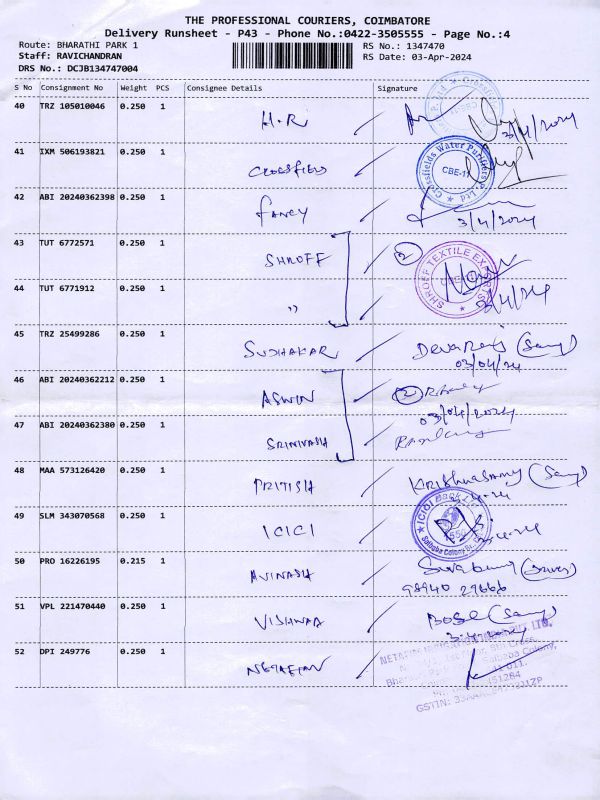 THE PROFESSIONAL COURIERS, COIMBATORE
Delivery Runsheet - P43 - Phone No.:0422-3505555 - Page No.:4
Route: BHARATHI PARK 1 RS No.: 1347470
Staff: RAVICHANDRAN RS Date: 03-Apr-2024
DRS No.: DCJB134747004
S No Consignment No Weight PCS Consignee Details Signature
40 TRZ 105010046 0.250 1 H.R 3/4/2024
41 IXM 506193821 0.250 1 CROSSFIELD Crossfields Water Purifiers CBE-11
42 ABI 20240362398 0.250 1 FANCY 3/4/2024
43 TUT 6772571 0.250 1 SHROFF 2 SHROFF TEXTILE EXPORTS
44 TUT 6771912 0.250 1 " 3/4/24
45 TRZ 25499286 0.250 1 SUDHAKAR Devaraj (Samy)
03/04/24
46 ABI 20240362212 0.250 1 ASWIN 2
03/04/2024
47 ABI 20240362380 0.250 1 SRINIVASA
48 MAA 573126420 0.250 1 PRITISH KRishnasamy (Samy)
3-4-24
49 SLM 343070568 0.250 1 ICICI ICICI Bank Ltd Saibaba Colony
50 PRO 16226195 0.215 1 AVINASH
98940 29666
51 VPL 221470440 0.250 1 VISHWAA BOSE (Samy)
3-4-2024
52 DPI 249776 0.250 1 NETAFIM
Saibaba Colony,
GSTIN: